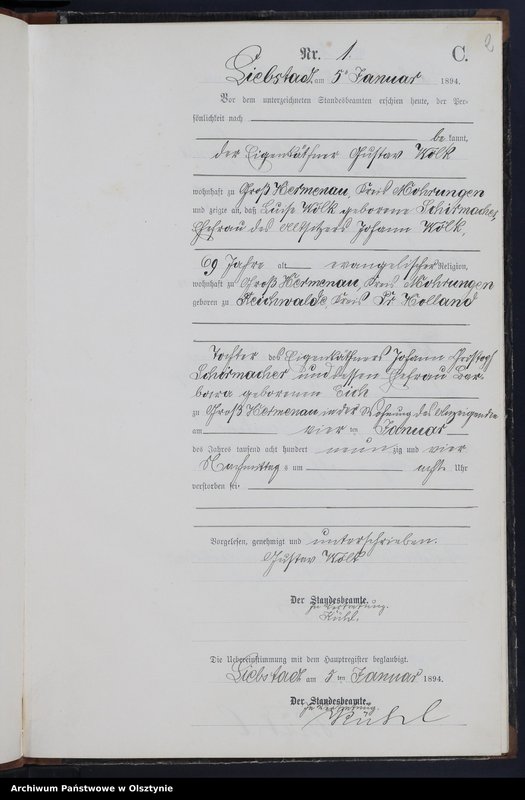 2
Nr. 1. C.
Liebstadt am 5n Januar 1894.
Vor dem unterzeichneten Standesbeamten erschien heute, der Per-
sönlichkeit nach
be kannt,
der Eigenkäthner Gustav Wölk
wohnhaft zu Groß Hermenau, Kreis Mohrungen
und zeigte an, daß Luise Wölk geborene Schirmacher,
Ehefrau des Altsitzers Johann Wölk,
69 Jahre alt evangelischer Religion,
wohnhaft zu Groß Hermenau, Kreis Mohrungen
geboren zu Reichwalde, Kreis Pr Holland
Tochter des Eigenkäthners Johann Christoph
Schirmacher und dessen Ehefrau Bar-
bara geborenen Eich
zu Groß Hermenau in der Wohnung des Anzeigenden
am vier ten Januar
des Jahres tausend acht hundert neun zig und vier
Nachmittags um acht Uhr
verstorben sei.
Vorgelesen, genehmigt und unterschrieben.
Gustav Wölk
Der Standesbeamte.
In Vertretung.
Kühl.
Die Uebereinstimmung mit dem Hauptregister beglaubigt.
Liebstadt am 5 ten Januar 1894.
Der Standesbeamte.
In Vertretung.
Kühl
Archiwum Państwowe w Olsztynie